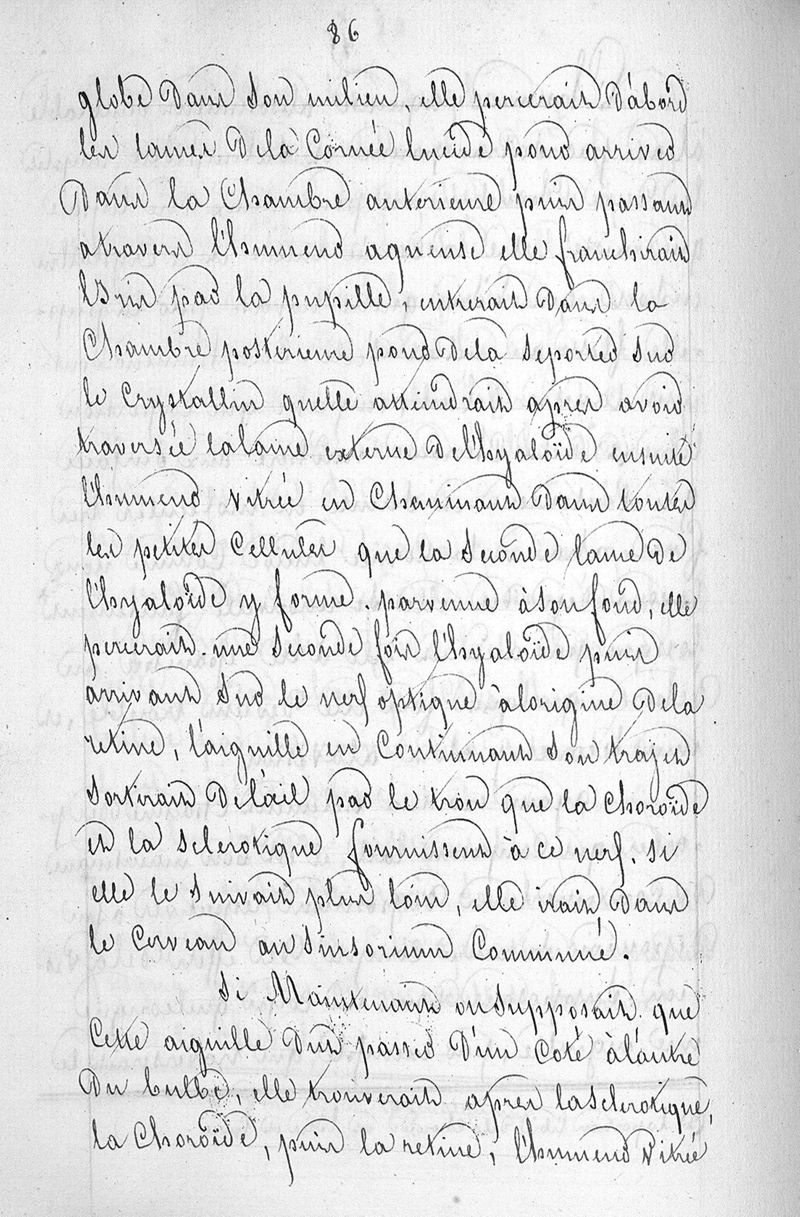 86
globe Dans Son milieu, elle percerait D'abord
les lames Dela Cornée lucide pour arriver
Dans la Chambre anterieure puis passant
atravers l'humeur aqueuse elle franchirait
l'Iris par la pupille, entrerait Dans la
Chambre posterieure pour Dela Seporter Sur
le Crystallin quelle atteindrait apres avoir
traversée lalame externe Del'hyaloïde ensuite
l'humeur vitrée en Cheminant Dans toutes
les petites Cellules que la Seconde lame De
l'hyaloïde y forme. parvenue àson fond, elle
percerait une Seconde fois l'hyaloïde puis
arrivant Sur le nerf optique àlorigine Dela
retine, l'aiguille en Continuant Son trajet
Sortirait Del'œil par le trou que la Choroïde
et la Sclerotique fournissent à ce nerf. Si
elle le Suivait plus loin, elle irait Dans
le Cerveau au Sinsorium Commune.
Si Maintenant on Supposait que
Cette aiguille Dut passer D'un Coté àl'autre
Du bulbe, elle trouverait apres lasclerotique,
la Choroïde, puis la retine, l'humeur Vitrée